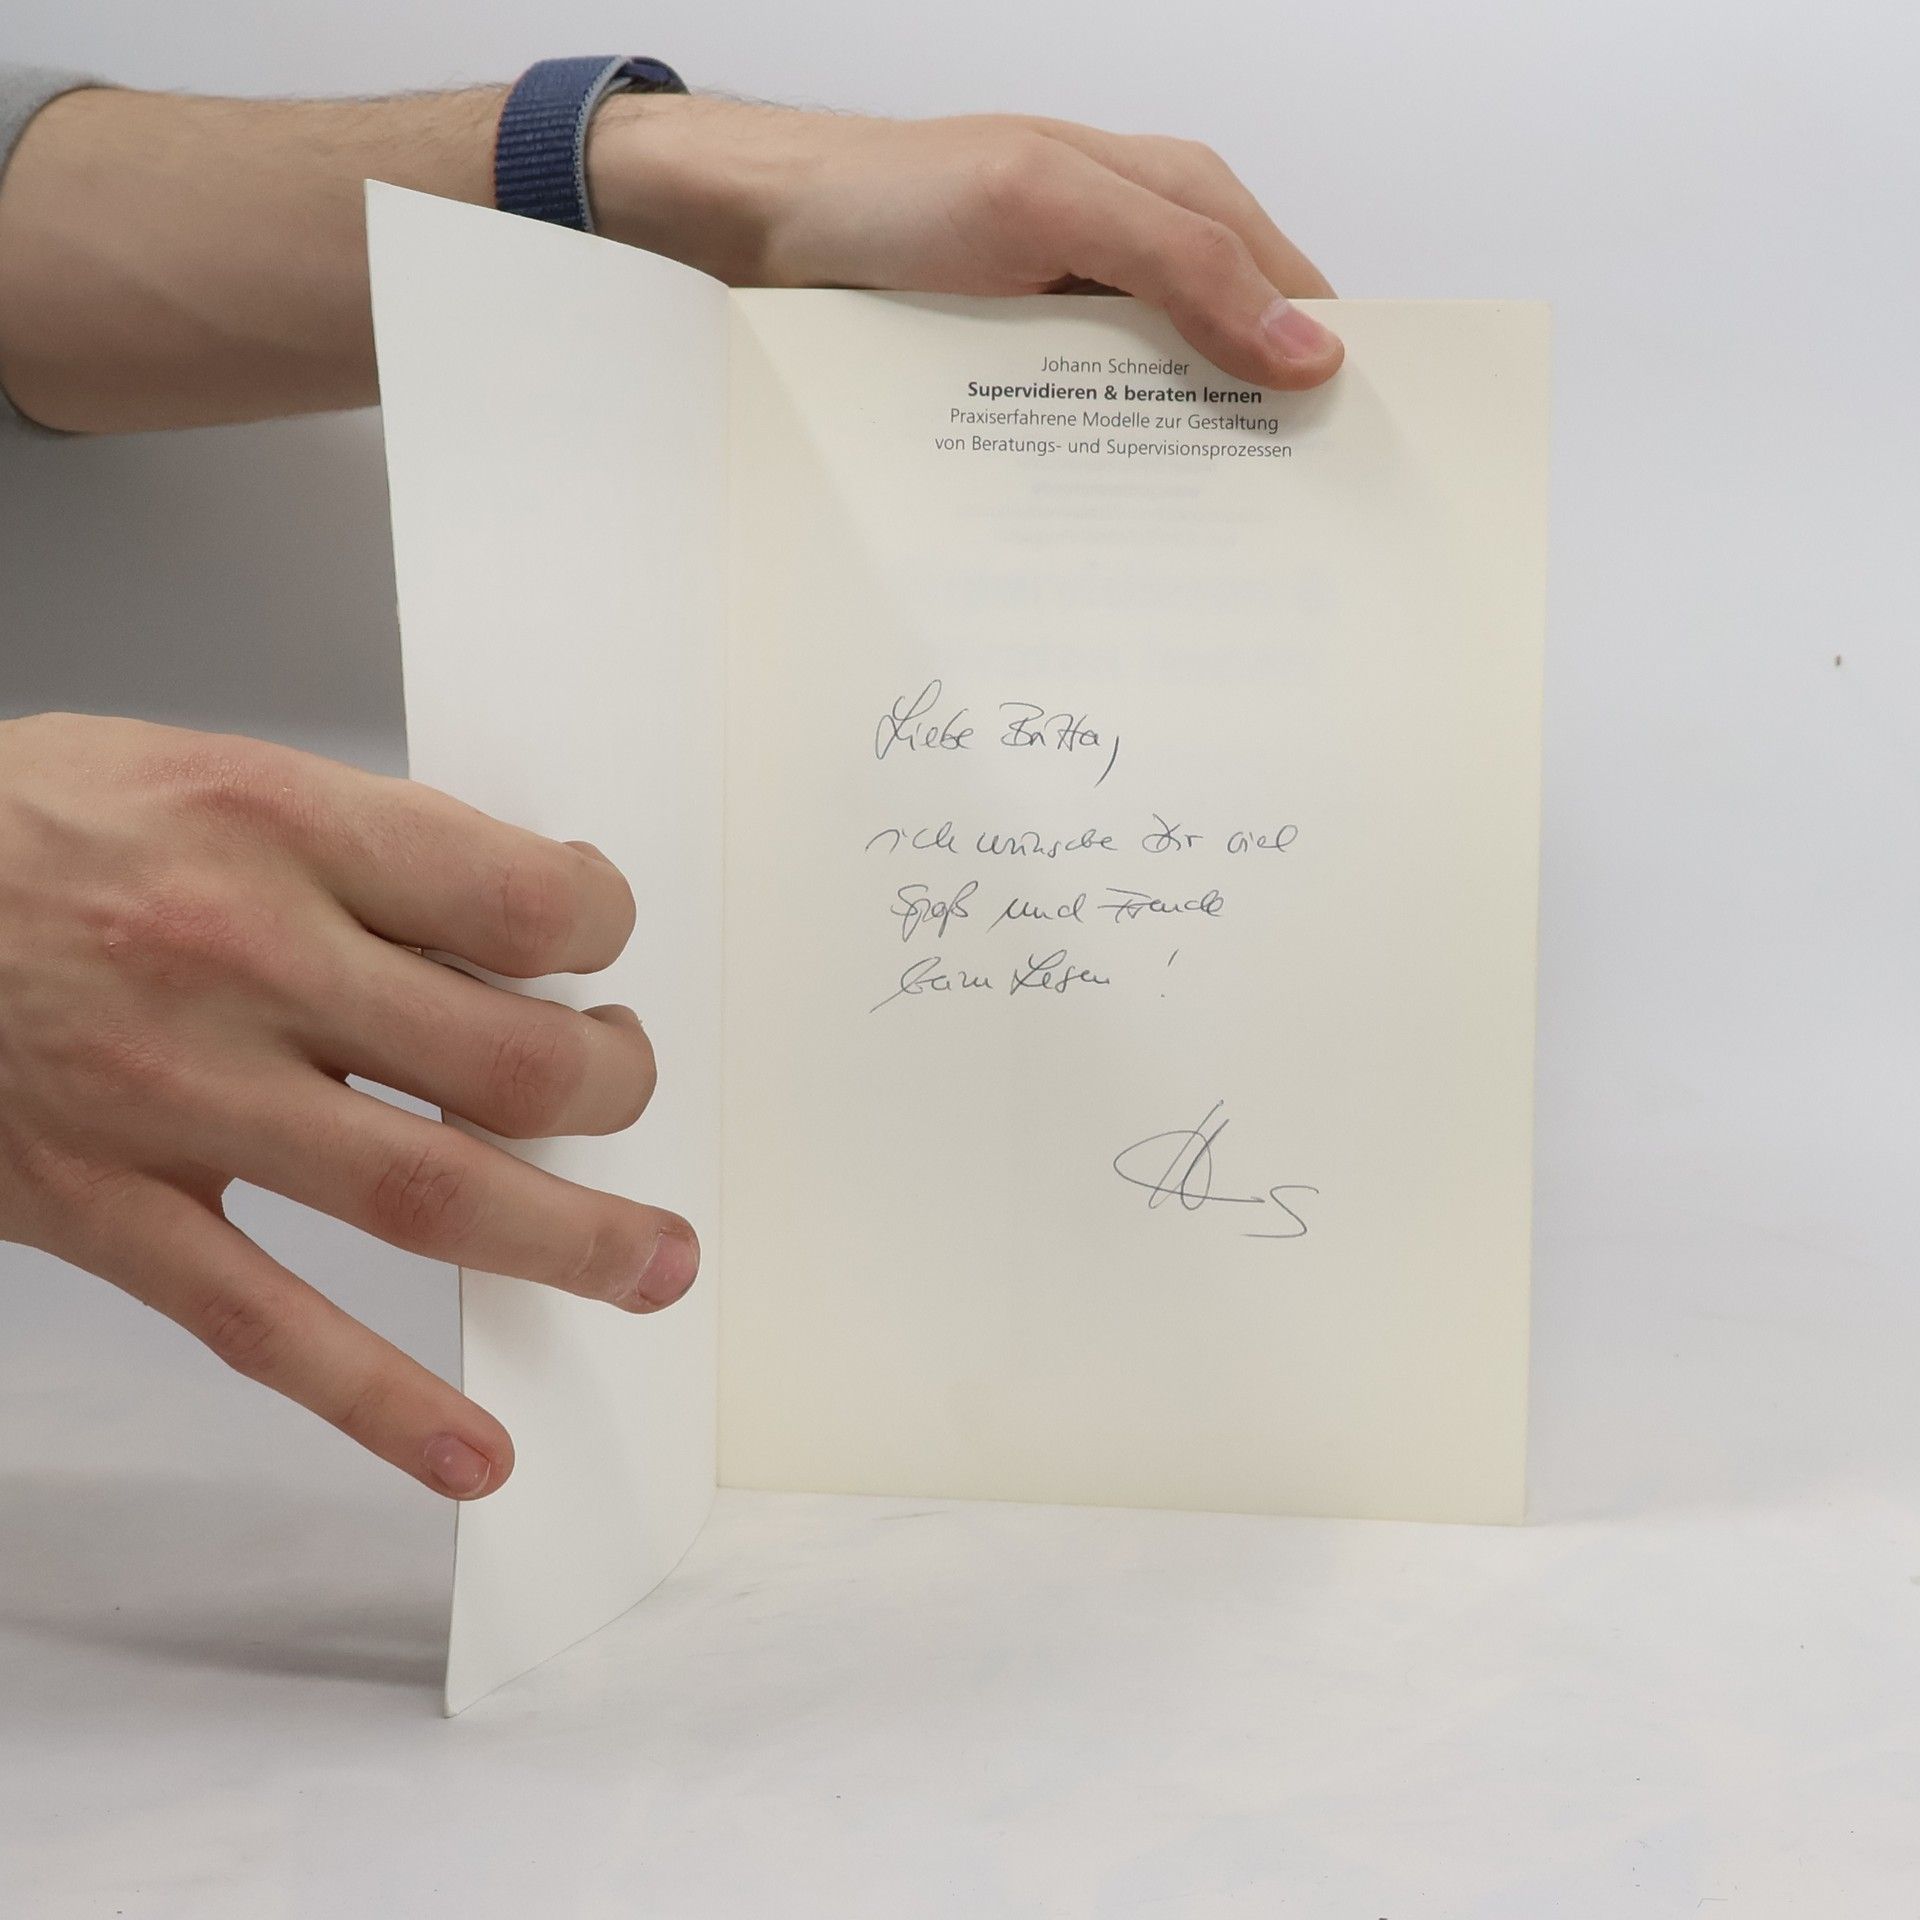 Johann Schneider
Supervidieren & beraten lernen
Praxiserfahrene Modelle zur Gestaltung
von Beratungs- und Supervisionsprozessen
Liebe Britta,
ich wünsche Dir viel
Spaß und Freude
beim Lesen !